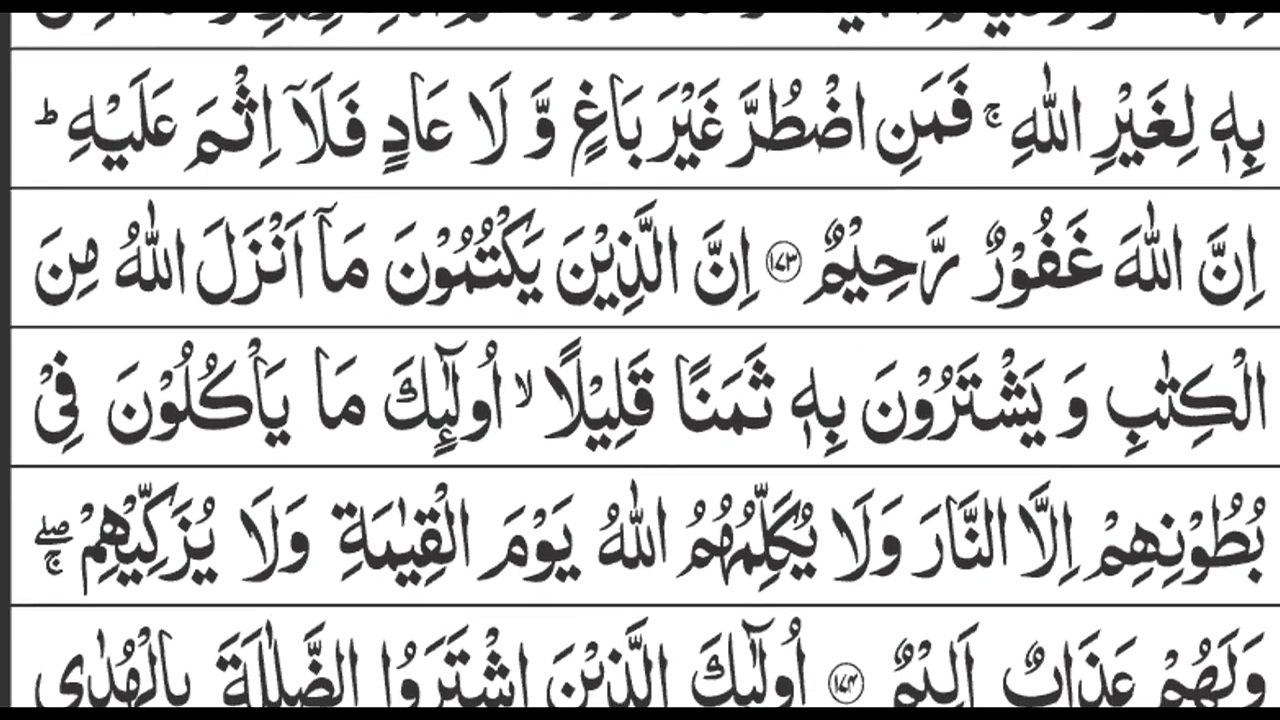 بِهٖ لِغَيْرِ اللّٰهِ ۚ فَمَنِ اضْطُرَّ غَيْرَ بَاغٍ وَّ لَا عَادٍ فَلَاۤ اِثْمَ عَلَيْهِ ؕ
اِنَّ اللّٰهَ غَفُوْرٌ رَّحِيْمٌ ﴿۱۷۳﴾ اِنَّ الَّذِيْنَ يَكْتُمُوْنَ مَاۤ اَنْزَلَ اللّٰهُ مِنَ
الْكِتٰبِ وَ يَشْتَرُوْنَ بِهٖ ثَمَنًا قَلِيْلًا ۙ اُولٰٓئِكَ مَا يَاْكُلُوْنَ فِيْ
بُطُوْنِهِمْ اِلَّا النَّارَ وَلَا يُكَلِّمُهُمُ اللّٰهُ يَوْمَ الْقِيٰمَةِ وَلَا يُزَكِّيْهِمْ ۖۚ
وَلَهُمْ عَذَابٌ اَلِيْمٌ ﴿۱۷۴﴾ اُولٰٓئِكَ الَّذِيْنَ اشْتَرَوُا الضَّلٰلَةَ بِالْهُدٰى